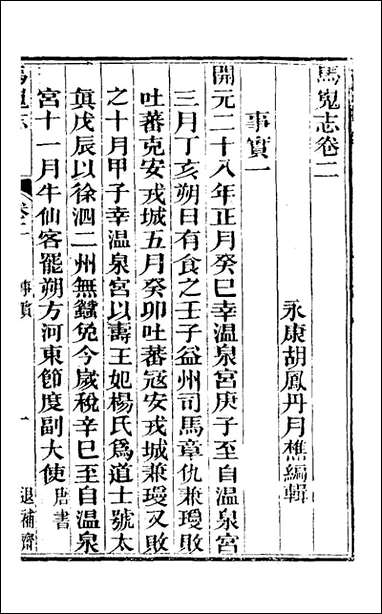 馬嵬志卷二
永康胡鳳丹月樵編輯
事實一
開元二十八年正月癸巳幸温泉宮庚子至自温泉宮
三月丁亥朔日有食之壬子益州司馬章仇兼瓊敗
吐蕃克安戎城五月癸卯吐蕃寇安戎城兼瓊又敗
之十月甲子幸温泉宮以壽王妃楊氏爲道士號太
眞戊辰以徐泗二州無蠶免今歲稅辛巳至自温泉
宮十一月牛仙客罷朔方河東節度副大使唐書
馬嵬志
卷二
事實
一
退補齋